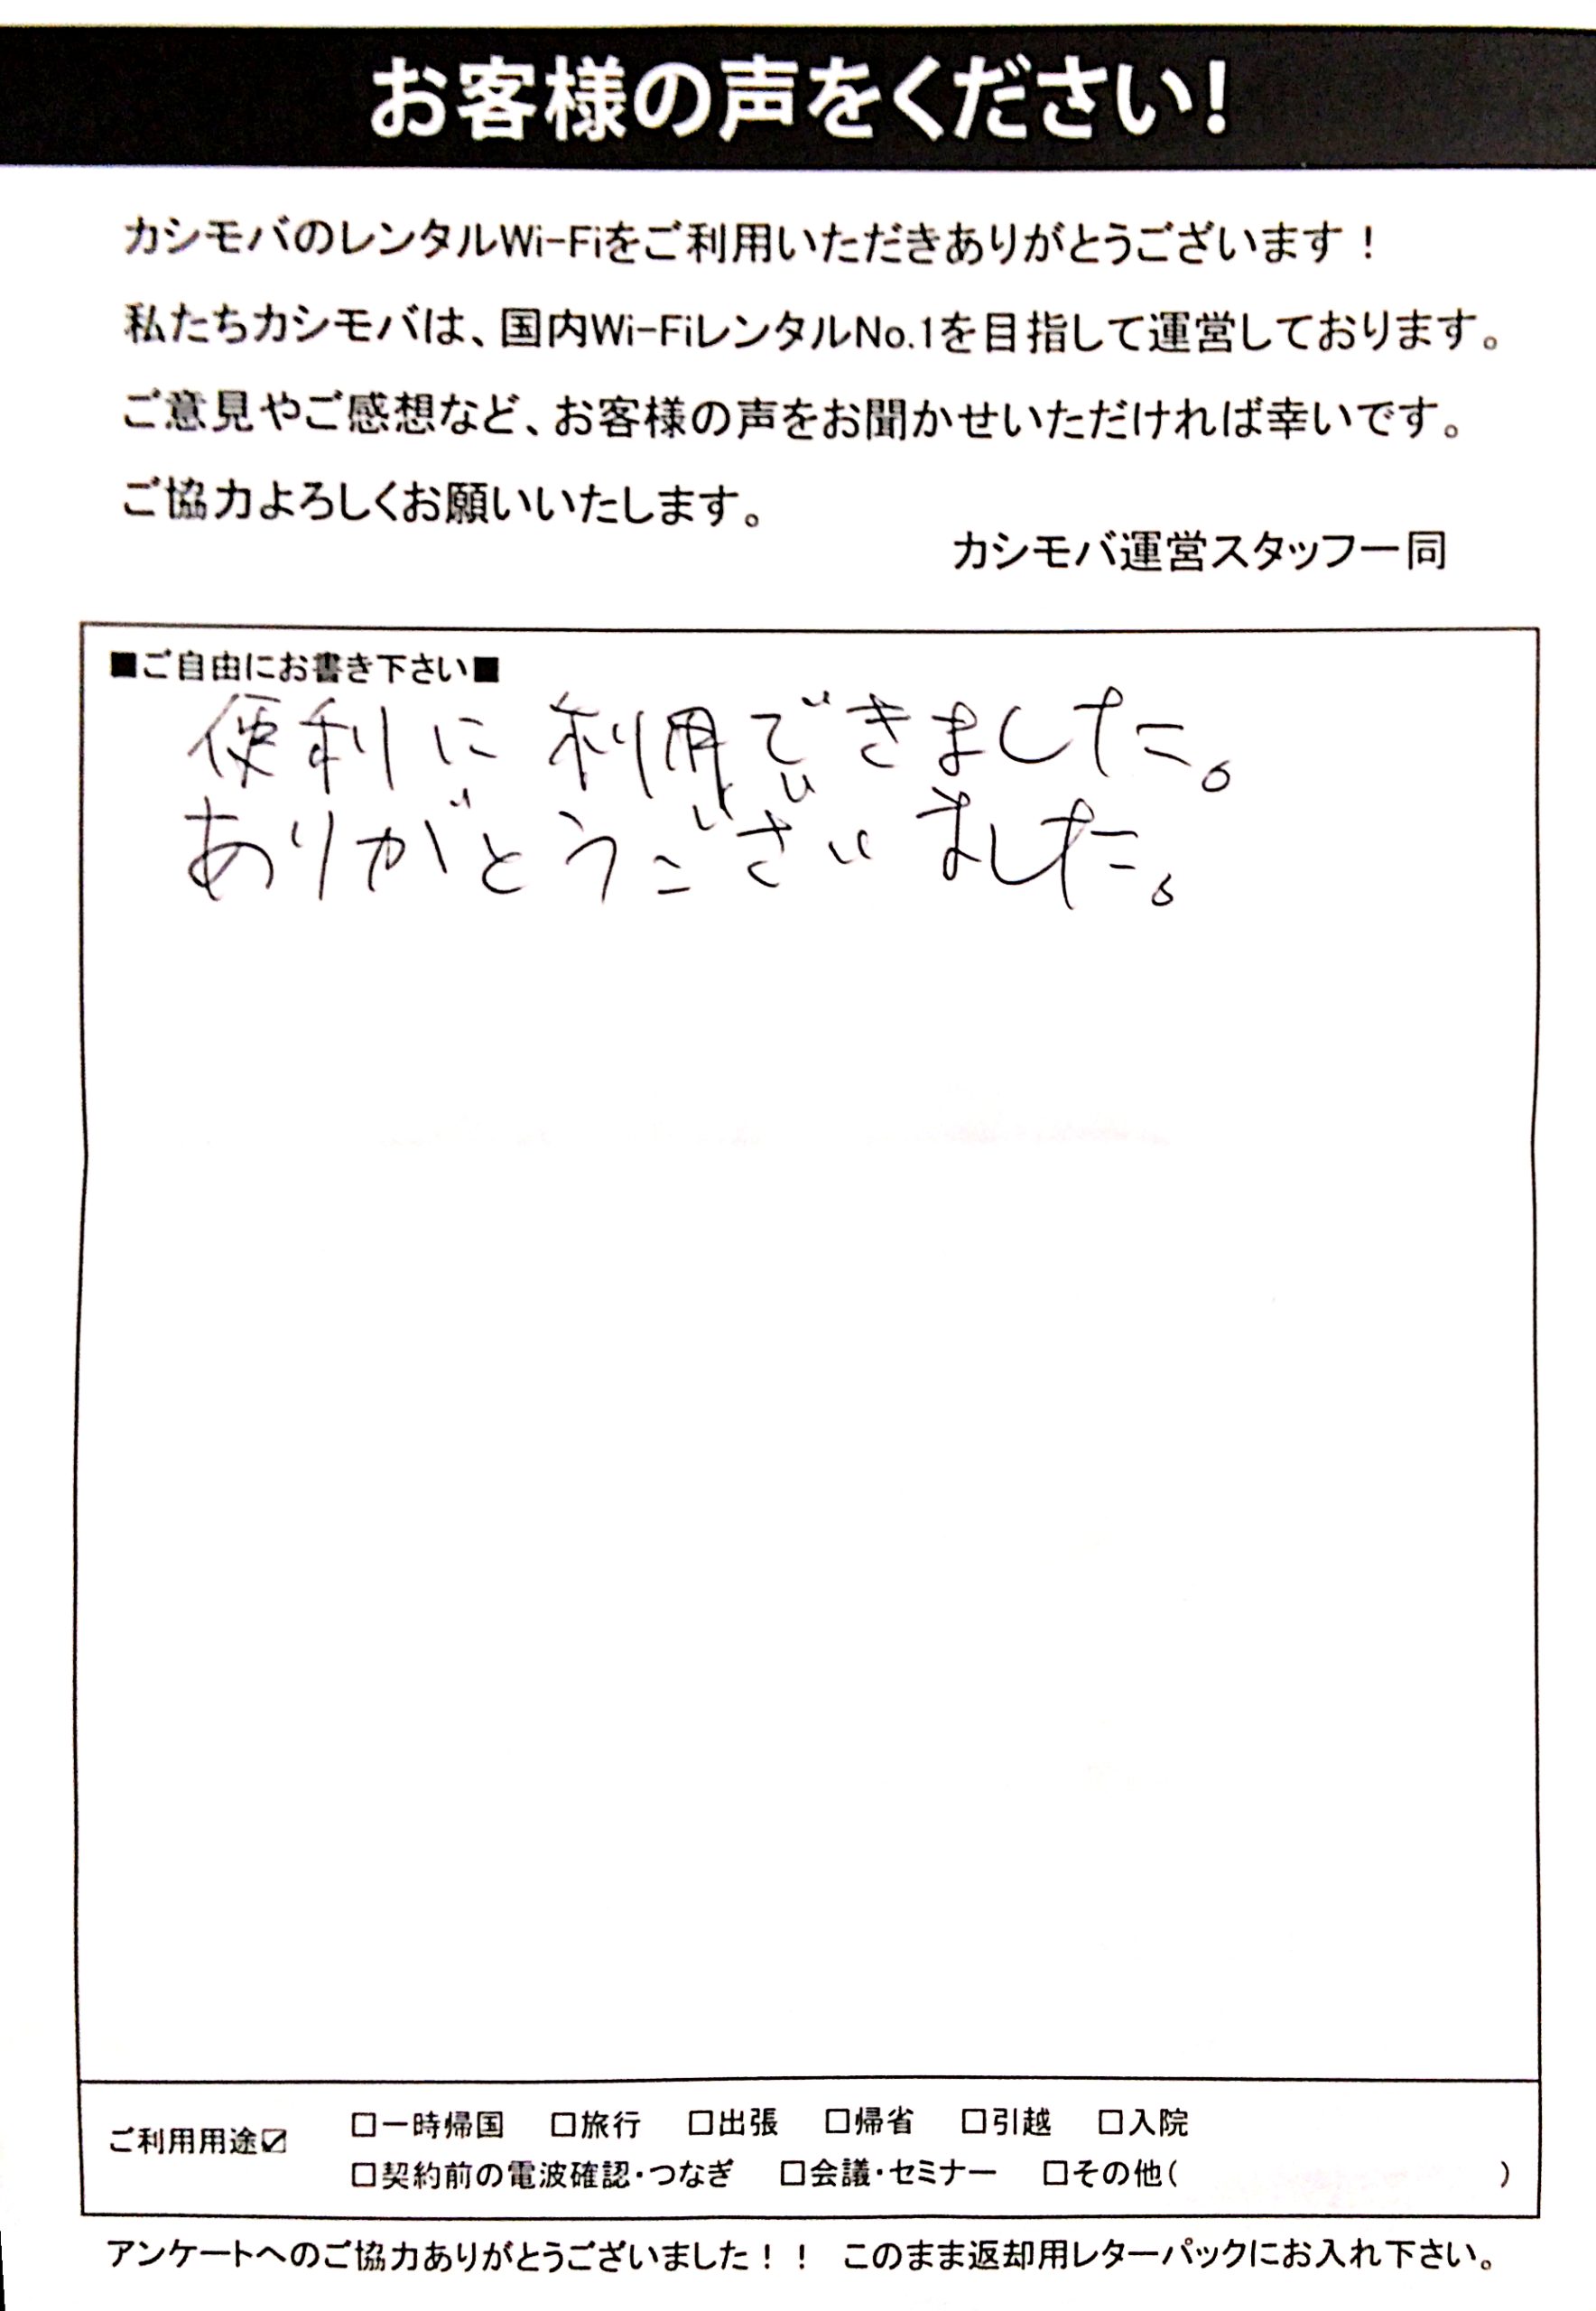 お客様の声をください!
カシモバのレンタルWi-Fiをご利用いただきありがとうございます！
私たちカシモバは、国内Wi-FiレンタルNo.1を目指して運営しております。
ご意見やご感想など、お客様の声をお聞かせいただければ幸いです。
ご協力よろしくお願いいたします。
カシモバ運営スタッフ一同
■ご自由にお書き下さい■
便利に利用できました。
ありがとうございました。
ご利用用途☑ □一時帰国 □旅行 □出張 □帰省 □引越 □入院
□契約前の電波確認・つなぎ □会議・セミナー □その他( )
アンケートへのご協力ありがとうございました！！ このまま返却用レターパックにお入れ下さい。